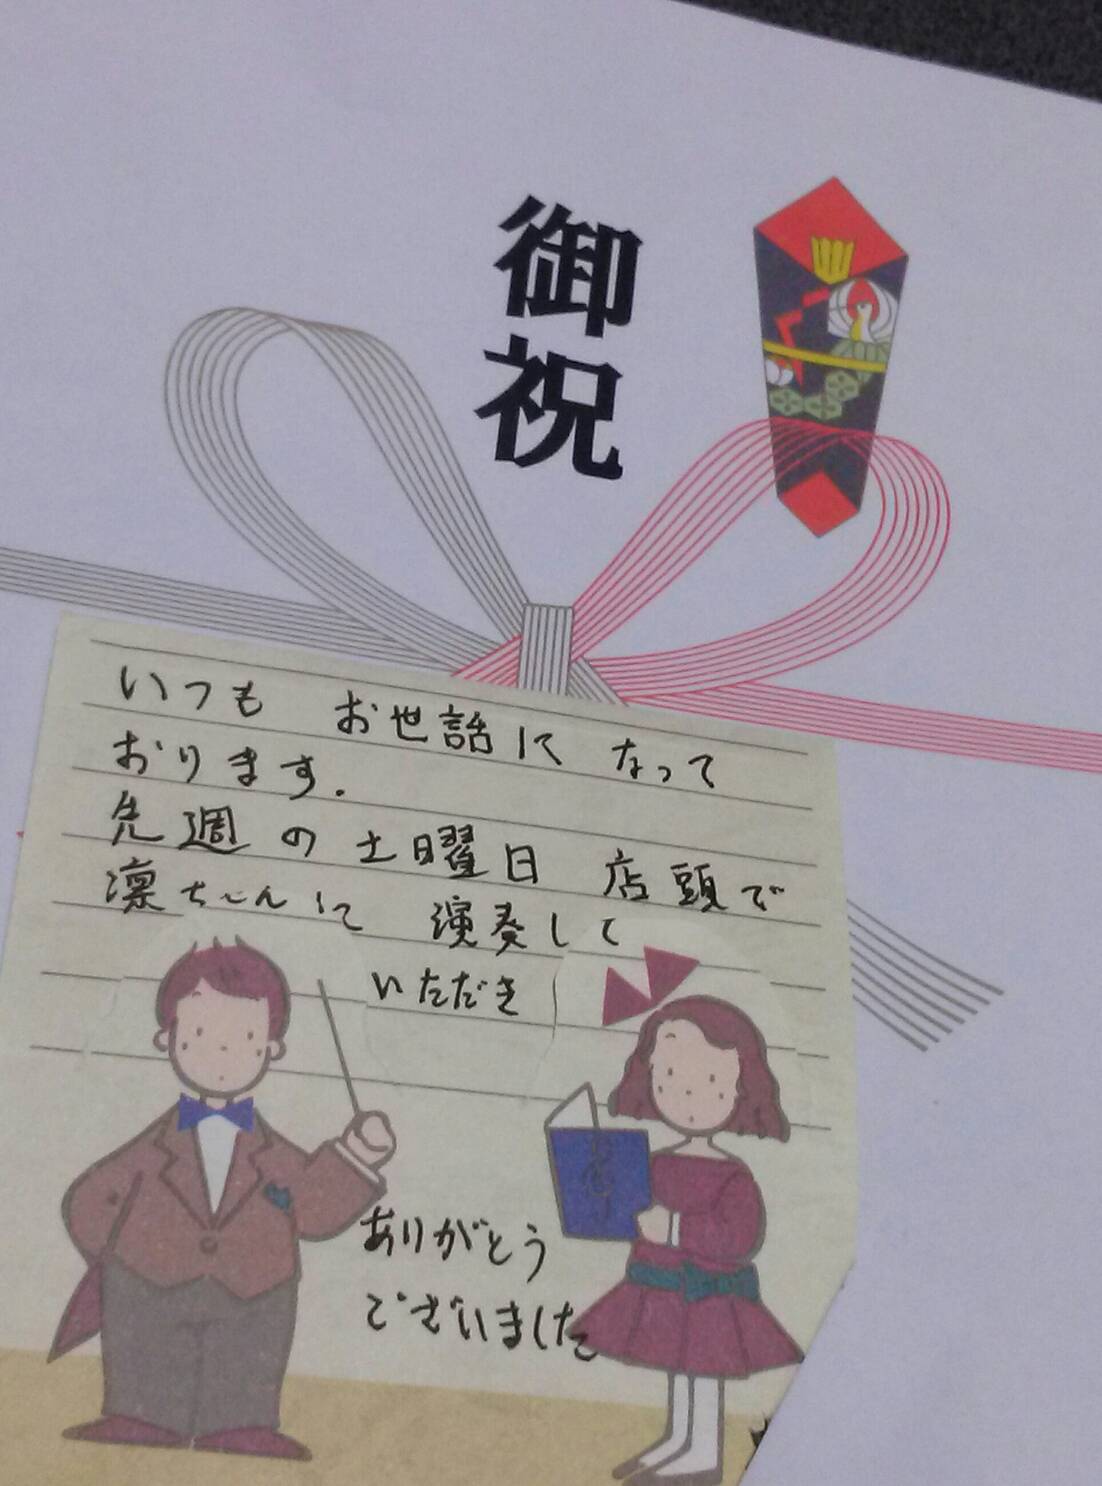 御祝
いつも お世話に なって
おります.
先週の土曜日 店頭で
凛ちゃんに 演奏して
いただき
ありがとう
ございました